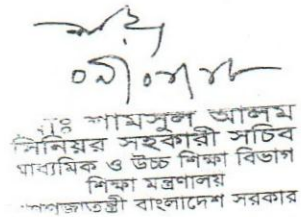 শামসুল আলম
সিনিয়র সহকারী সচিব
মাধ্যমিক ও উচ্চ শিক্ষা বিভাগ
শিক্ষা মন্ত্রণালয়
গণপ্রজাতন্ত্রী বাংলাদেশ সরকার